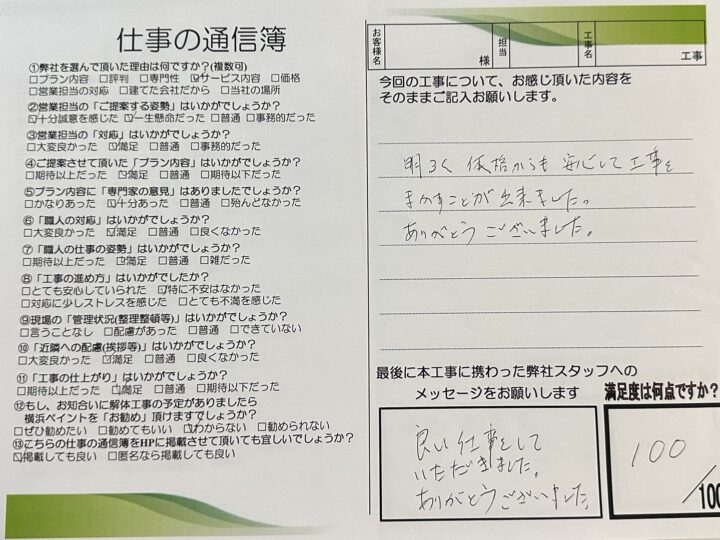 仕事の通信簿
①弊社を選んで頂いた理由は何ですか?(複数可)
□プラン内容 □評判 □専門性 ☑サービス内容 □価格
□営業担当の対応 □建てた会社だから □当社の場所
②営業担当の「ご提案する姿勢」はいかがでしょうか?
☑十分誠意を感じた ☑一生懸命だった □普通 □事務的だった
③営業担当の「対応」はいかがでしょうか?
□大変良かった ☑満足 □普通 □事務的だった
④ご提案させて頂いた「プラン内容」はいかがでしょうか?
□期待以上だった ☑満足 □普通 □期待以下だった
⑤プラン内容に「専門家の意見」はありましたでしょうか?
□かなりあった ☑十分あった □普通 □殆んどなかった
⑥「職人の対応」はいかがでしょうか?
□大変良かった ☑満足 □普通 □良くなかった
⑦「職人の仕事の姿勢」はいかがでしょうか?
□期待以上だった ☑満足 □普通 □雑だった
⑧「工事の進め方」はいかがでしたか?
□とても安心していられた ☑特に不安はなかった
□対応に少しストレスを感じた □とても不満を感じた
⑨現場の「管理状況(整理整頓等)」はいかがでしょうか?
□言うことなし □配慮があった □普通 □できていない
⑩「近隣への配慮(挨拶等)」はいかがでしょうか?
□大変良かった ☑満足 □普通 □良くなかった
⑪「工事の仕上がり」はいかがでしょうか?
□期待以上だった ☑満足 □普通 □期待以下だった
⑫もし、お知合いに解体工事の予定がありましたら
横浜ペイントを「お勧め」頂けますでしょうか?
□ぜひ勧めたい □勧めてもいい ☑わからない □勧められない
⑬こちらの仕事の通信簿をHPに掲載させて頂いても宜しいでしょうか?
☑掲載しても良い □匿名なら掲載しても良い
お客様名 様 担当 工事名 工事
今回の工事について、お感じ頂いた内容を
そのままご記入お願いします。
明るく 価格からも 安心して工事を
まかすことが出来ました。
ありがとうございました。
最後に本工事に携わった弊社スタッフへの
メッセージをお願いします
良い仕事をして
いただきました。
ありがとうございました
満足度は何点ですか?
100
/100